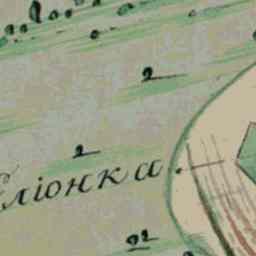 2
2
ліонка.
22